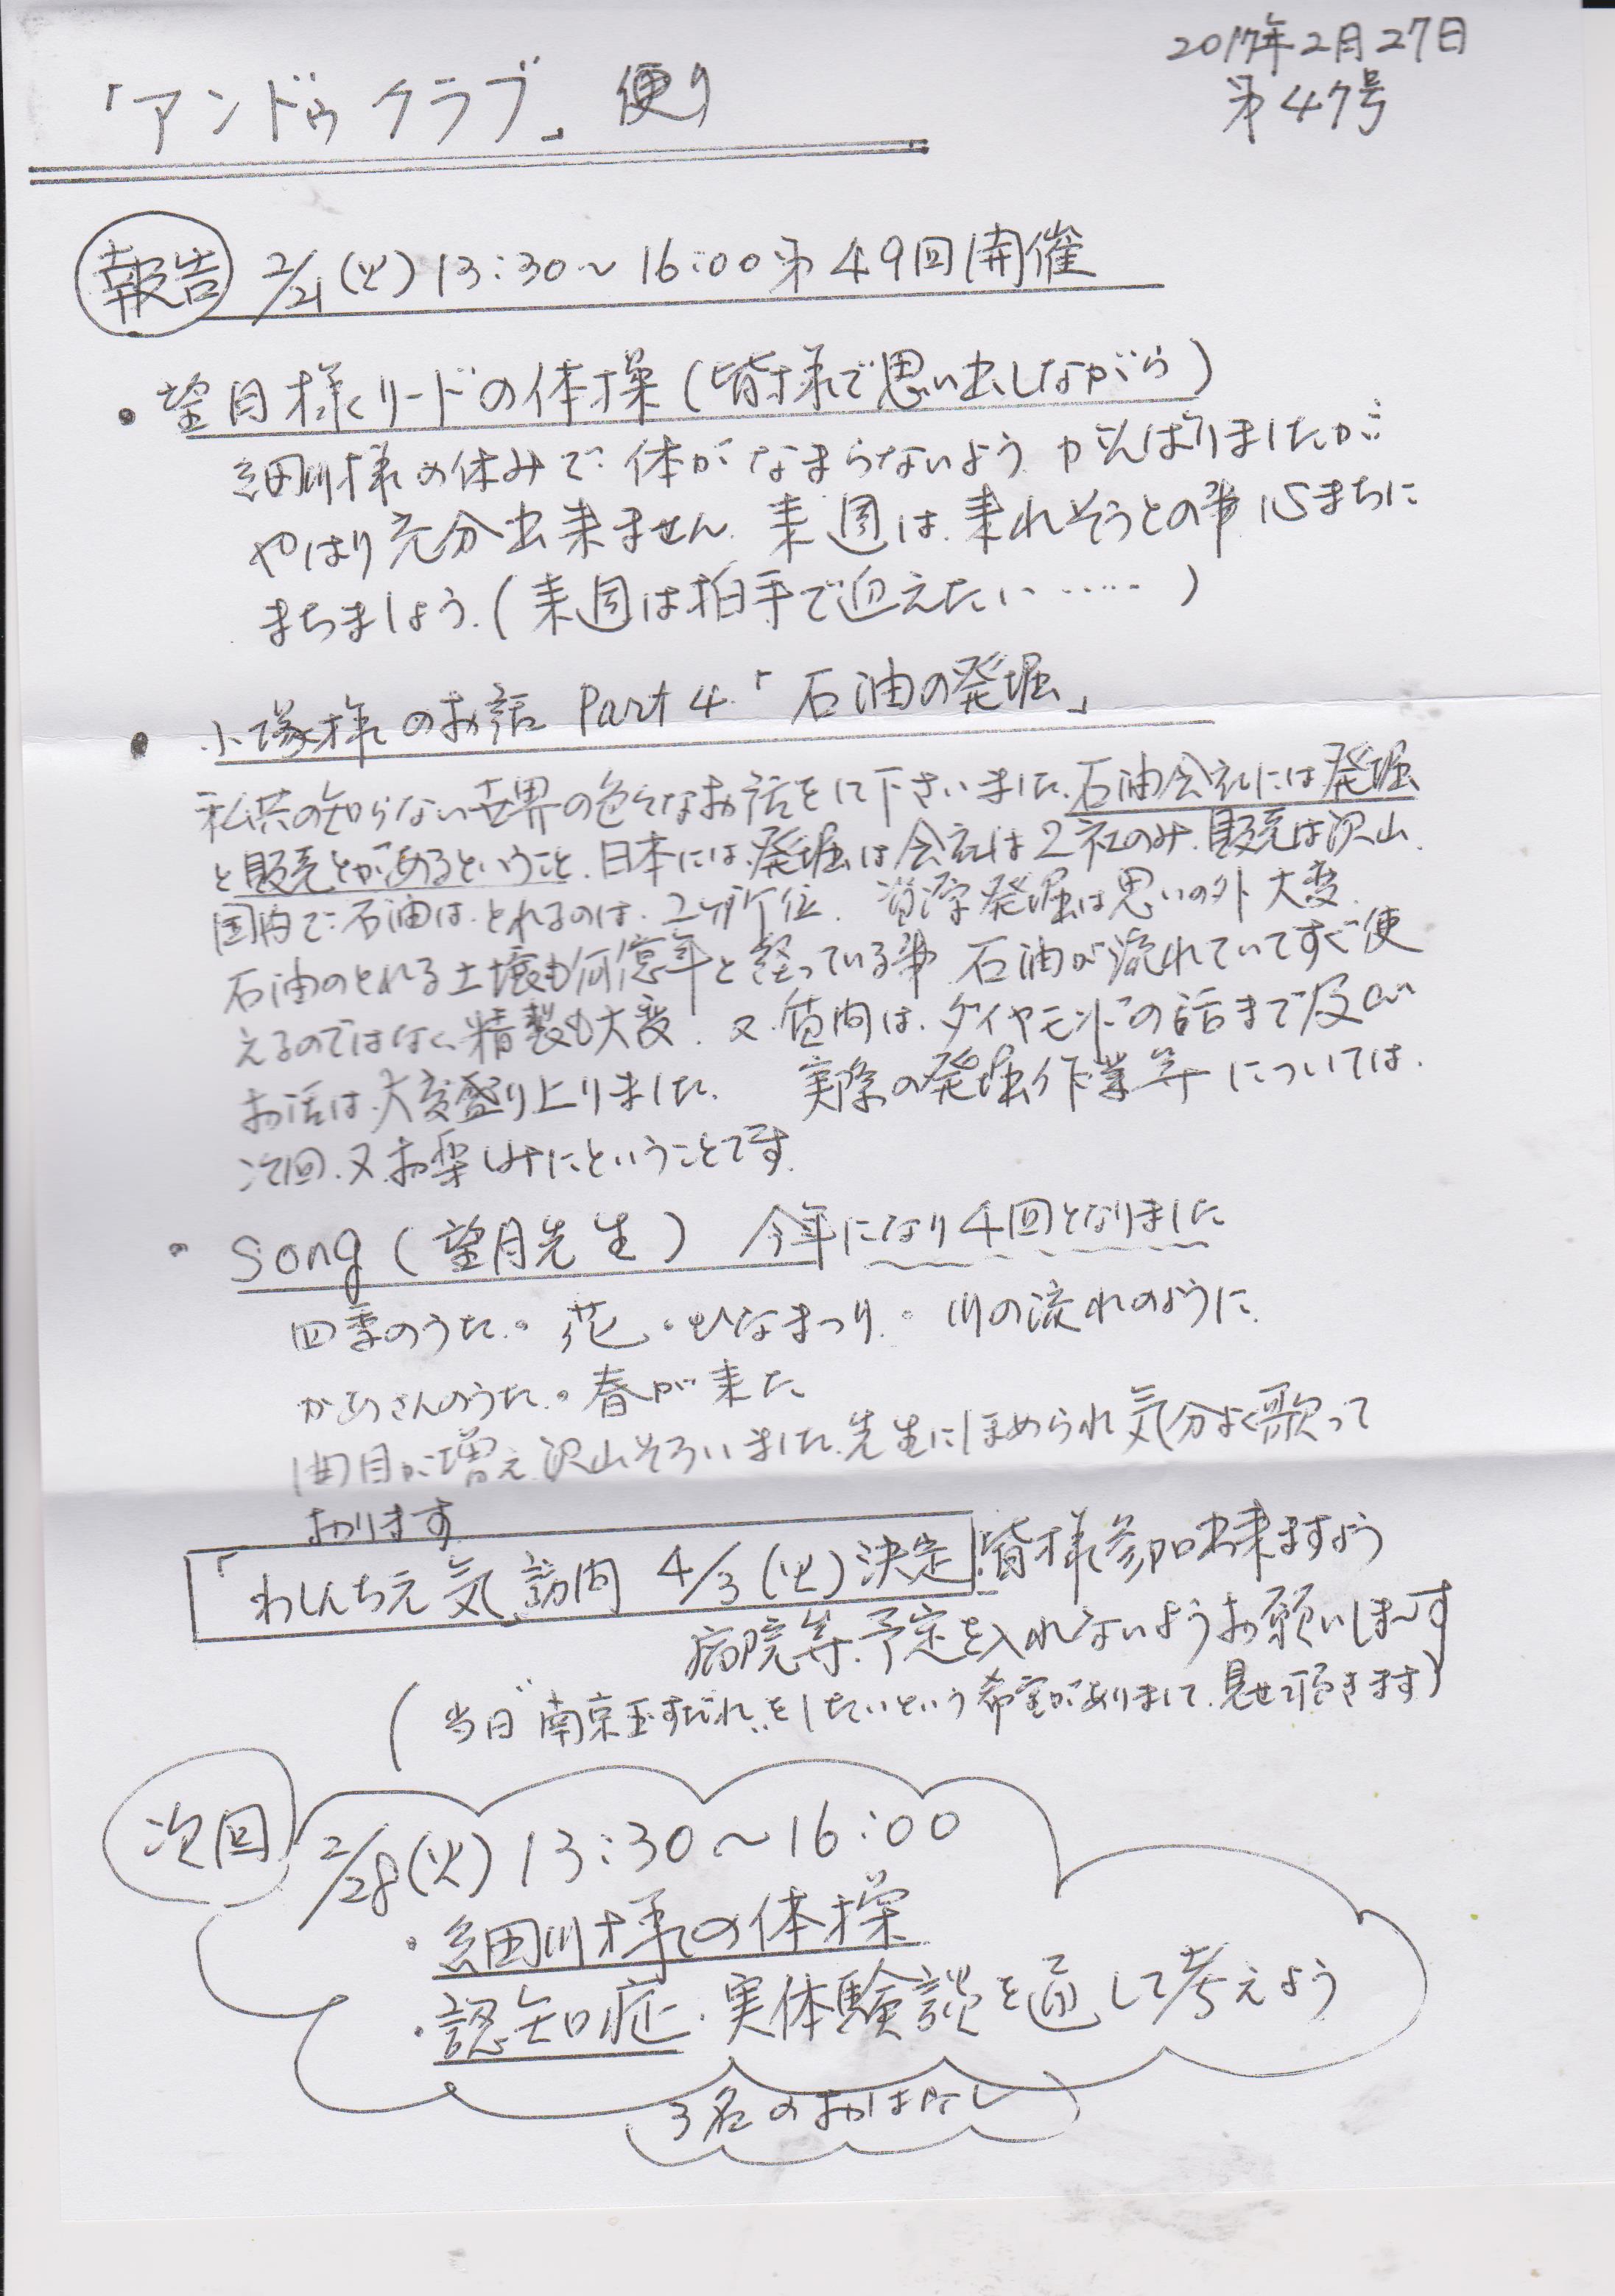 2017年2月27日
第47号
「アンドゥクラブ」便り
報告 2/21(火)13:30~16:00第49回開催
・望月様リードの体操(皆様で思い出しながら)
細川様の休みで体がなまらないようがんばりましたが
やはり充分出来ません.来週は.来れそうとの事心まちに
まちましょう.(来週は拍手で迎えたい……)
・小塚様のお話 Part4.「石油の発掘」
私共の知らない世界の色々なお話をして下さいました.石油会社には発掘
と販売とがあるということ.日本には.発掘は会社は2社のみ.販売は沢山.
国内で石油は.とれるのは.2ヶ所位.資源発掘は思いの外大変.
石油のとれる土壌も何億年と経っている事 石油が流れていてすぐ使
えるのではなく、精製も大変.又.質問は.ダイヤモンドの話まで及び
お話は.大変盛り上りました. 実際の発掘作業等については.
次回.又お楽しみにということです.
・Song(望月先生) 今年になり4回となりました
四季のうた.・花.・ひなまつり.・川の流れのように.
かあさんのうた.・春が来た
曲目が増え.沢山そろいました.先生にほめられ気分よく歌って
おります
「わしんちえ気」訪問 4/3(火)決定 皆様参加出来ますよう
病院等.予定を入れないようお願いしま~す
(当日"南京玉すだれ"をしたいという希望がありまして.見せて頂きます)
次回 2/28(火)13:30~16:00
・細川様の体操
・認知症.実体験談を通して考えよう
3名のおはなし